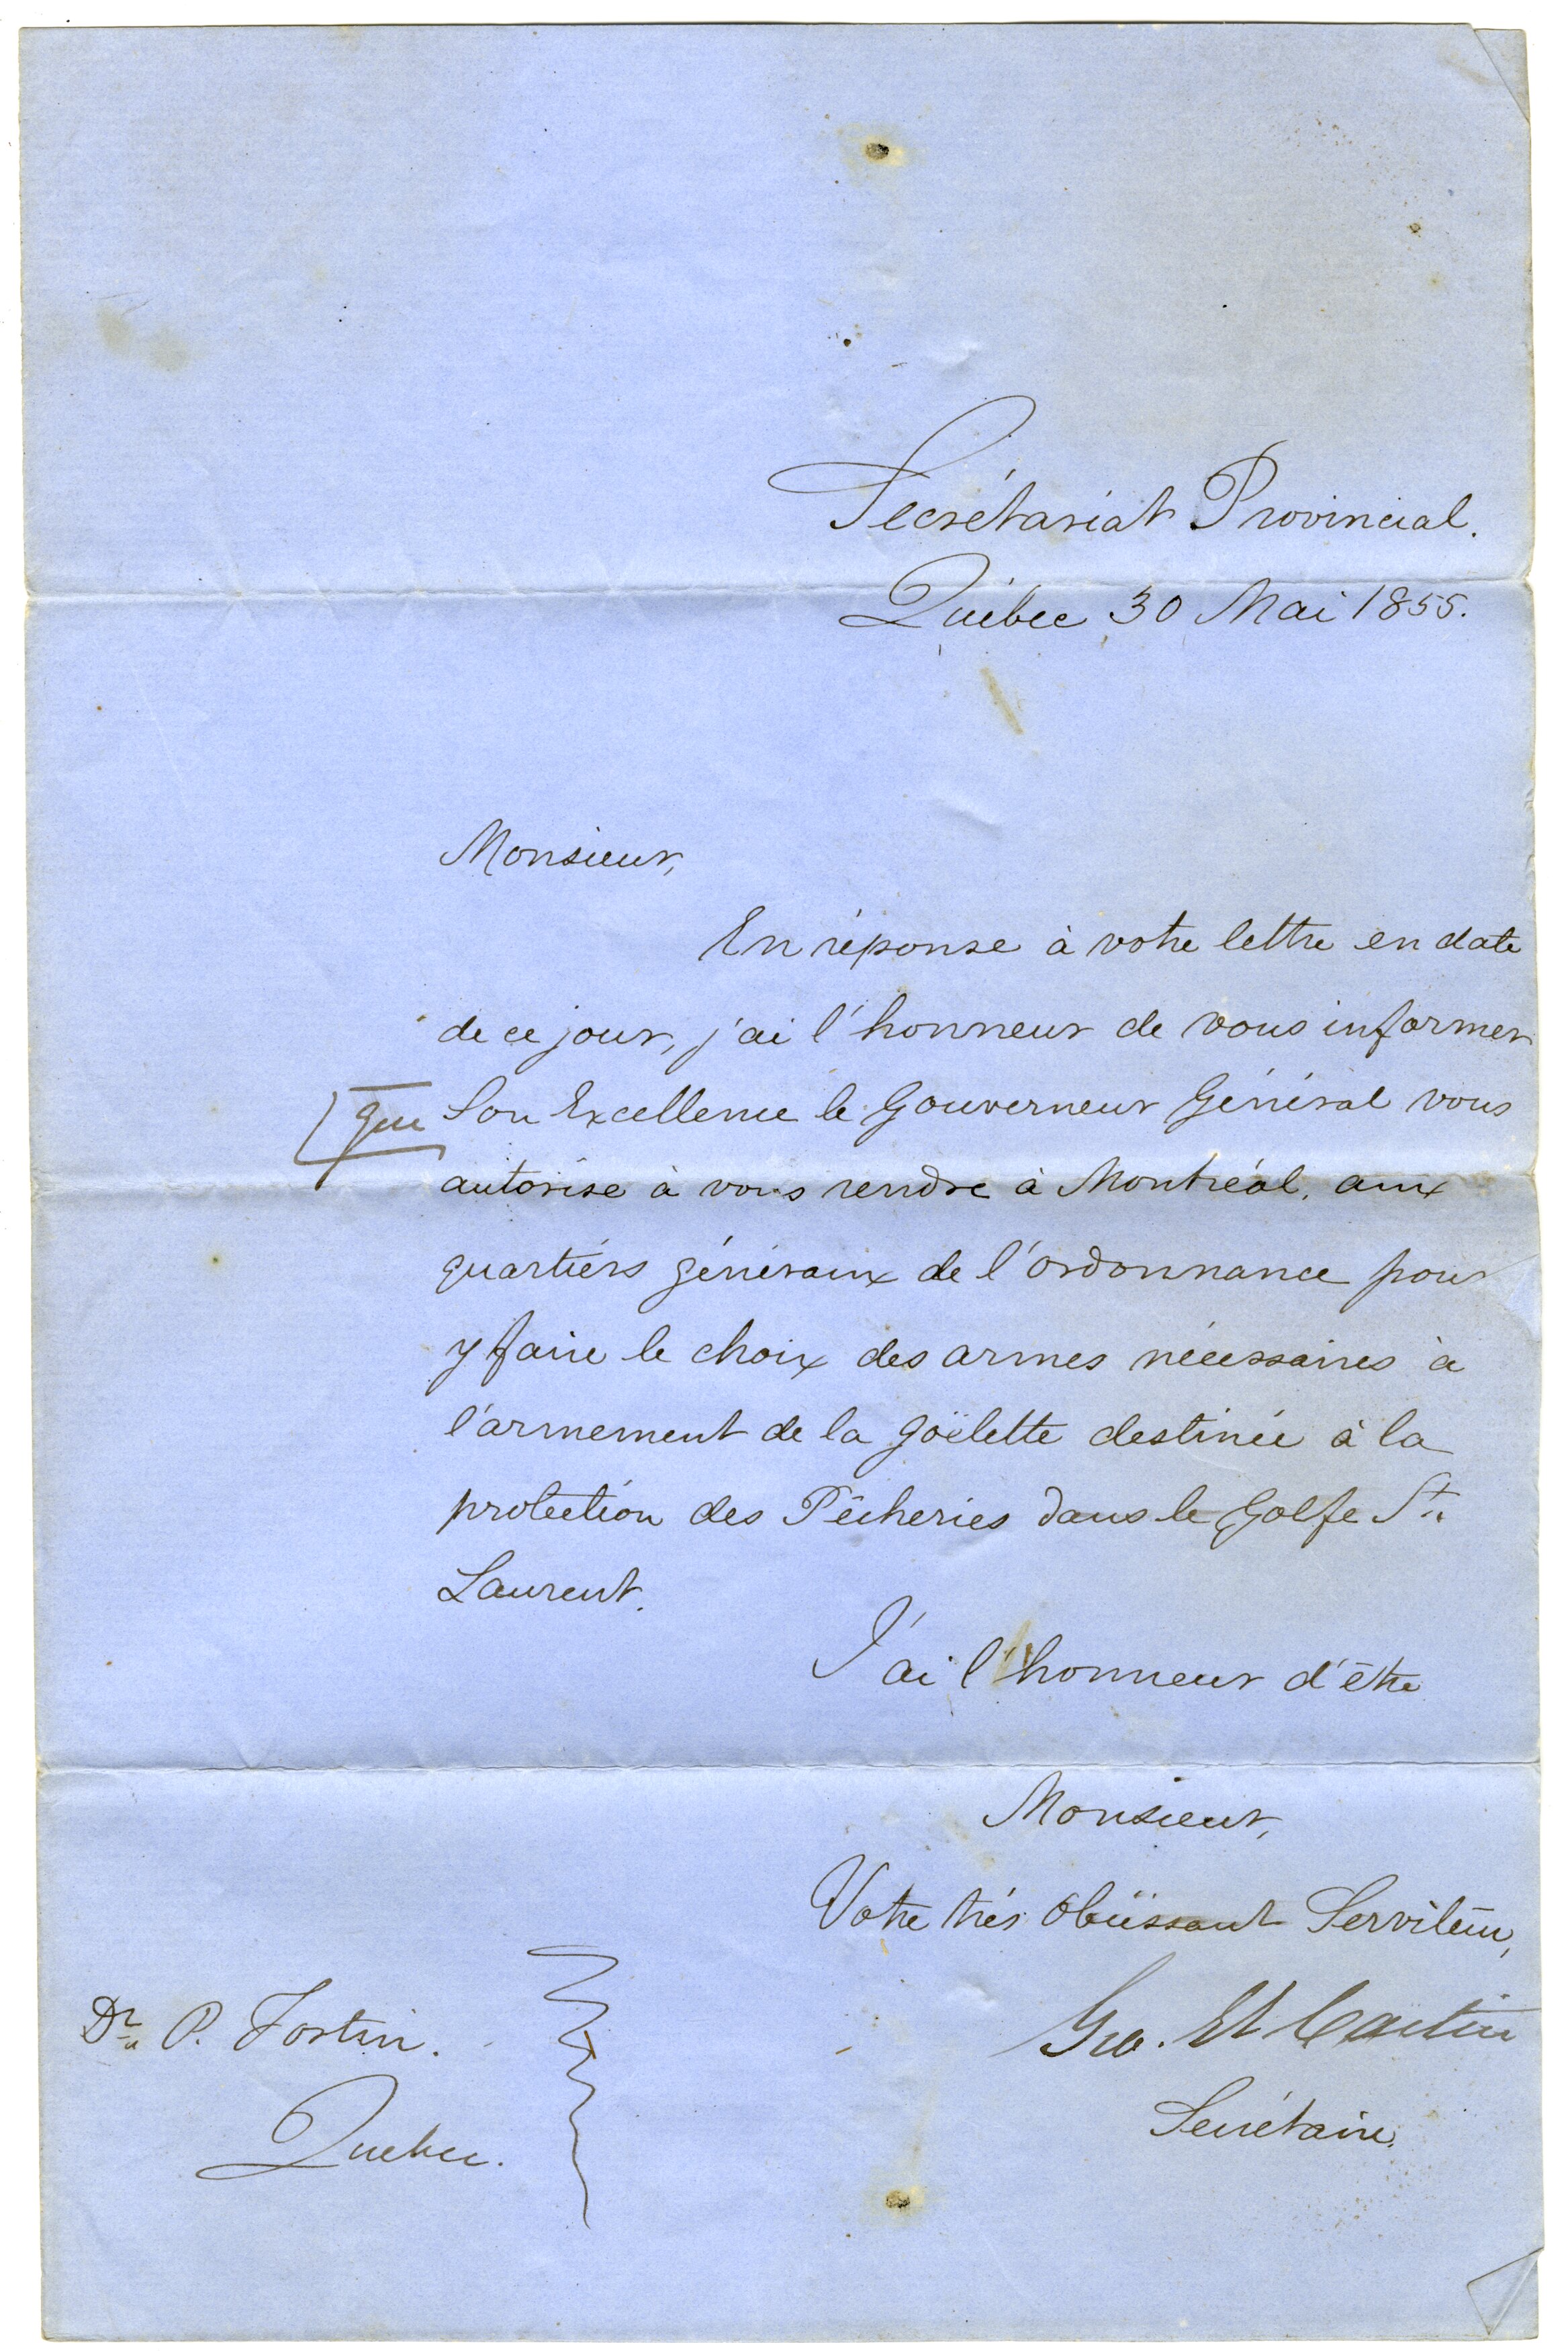 Secrétariat Provincial.
Québec 30 Mai 1855.
Monsieur,
En réponse à votre lettre en date
de ce jour, j'ai l'honneur de vous informer
que Son Excellence le Gouverneur Général vous
autorise à vous rendre à Montréal, aux
quartiers généraux de l'ordonnance pour
y faire le choix des armes nécessaires à
l'armement de la goëlette destinée à la
protection des Pêcheries dans le Golfe St.
Laurent.
J'ai l'honneur d'être
Monsieur,
Votre très obéissant Serviteur,
Geo. Et Cartier
Secrétaire.
Dr. P. Fortin.
Quebec.